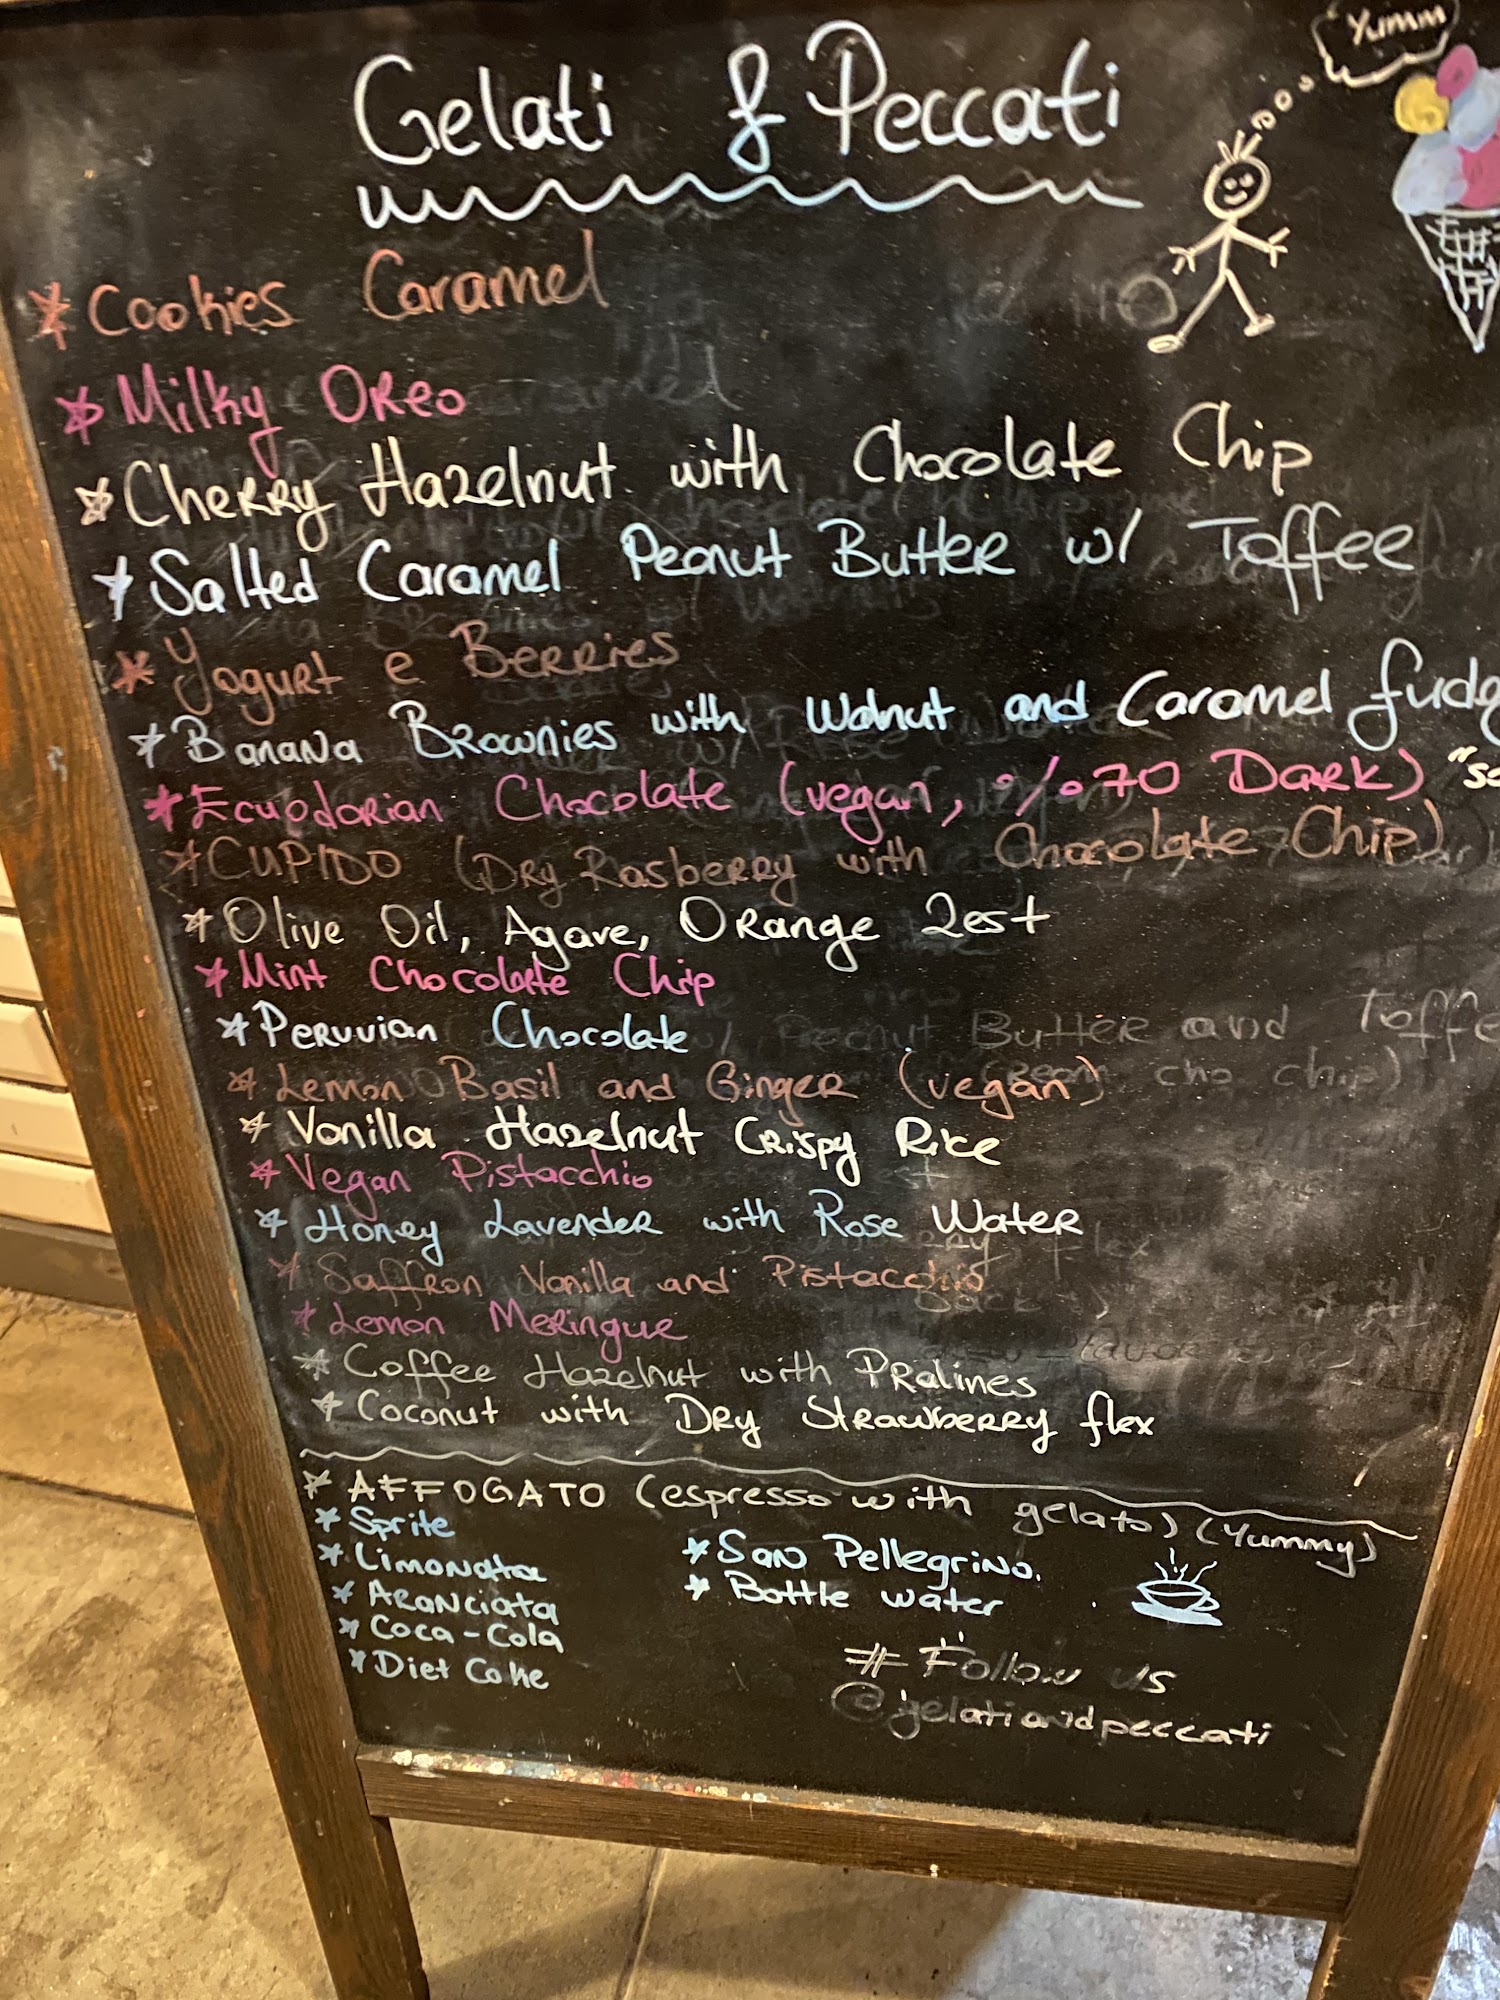 Yumm
Gelati & Peccati
* Cookies Caramel
* Milky Oreo
* Cherry Hazelnut with Chocolate Chip
* Salted Caramel Peanut Butter w/ Toffee
* Yogurt e Berries
* Banana Brownies with Walnut and Caramel fudg
* Ecuadorian Chocolate (vegan, %70 Dark)
* CUPIDO (Dry Rasberry with Chocolate Chip)
* Olive Oil, Agave, Orange Zest
* Mint Chocolate Chip
* Peruvian Chocolate
Peanut Butter and Toffe
* Lemon Basil and Ginger (vegan)
cho chip)
* Vanilla Hazelnut Crispy Rice
* Vegan Pistacchio
* Honey Lavender with Rose Water
* Saffron Vanilla and Pistacchio
* Lemon Meringue
* Coffee Hazelnut with Pralines
* Coconut with Dry Strawberry flex
* AFFOGATO (espresso with gelato) (Yummy)
* Sprite
* Limonata
* Aranciata
* Coca-Cola
* Diet Coke
* San Pellegrino.
* Bottle water
# Follow us
@gelatiandpeccati